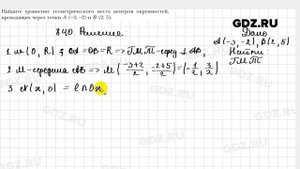 Найдите уравнение геометрического места центров окружностей,
проходящих через точки A (−3; −2) и B (2; 5).
GDZ.RU
840 Решение
Дано
A(-3,-2), B(2,5)
Найти
ГМТ
1. w(O, R) OA=OB=R => ГМТ-сер AB,
2 M-середина AB => M(-3+2/2, -2+5/2)=(-1/2, 3/2)
3. N(x,0) = l∩Ox,